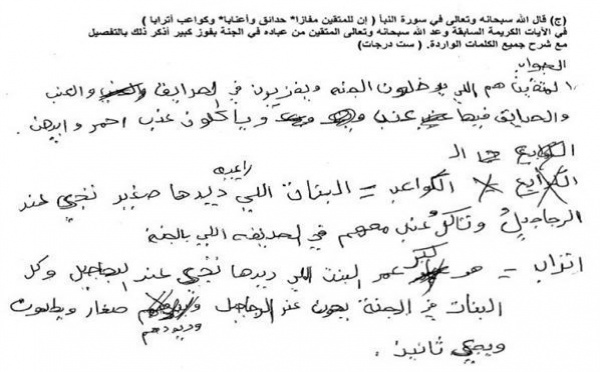 (ج) قال الله سبحانه وتعالى في سورة النبأ ( إن للمتقين مفازا* حدائق وأعنابا* وكواعب أترابا )
في الآيات الكريمة السابقة وعد الله سبحانه وتعالى المتقين من عباده في الجنة بفوز كبير أذكر ذلك بالتفصيل
مع شرح جميع الكلمات الواردة. ( ست درجات)
الجواب
هم اللي يدخلون الجنه ويفوزون في الحدايق والعنب
والحدايق فيها عنب وياكلون عنب احمر وابيض.
الكواعب = البنات اللي ديدها صغير تجي عند
الرجاجيل وتاكل عنب معهم في الحديقه اللي بالجنة
اتراب = هو عمر البنت اللي ديدها تجي عند الرجاجيل وكل
البنات في الجنة يجون عند الرجاجيل صغار ويطلعون
وديودهم
ويجي ثانين.